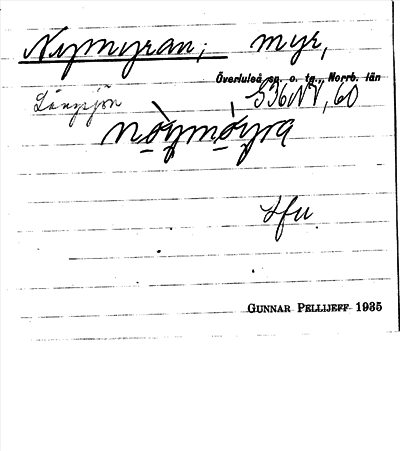 Nymyran; myr,
Överluleå sn. o. tg., Norrb. län
Långsjön S36NV, 60
nøymøyra
Gunnar Pellijeff 1935